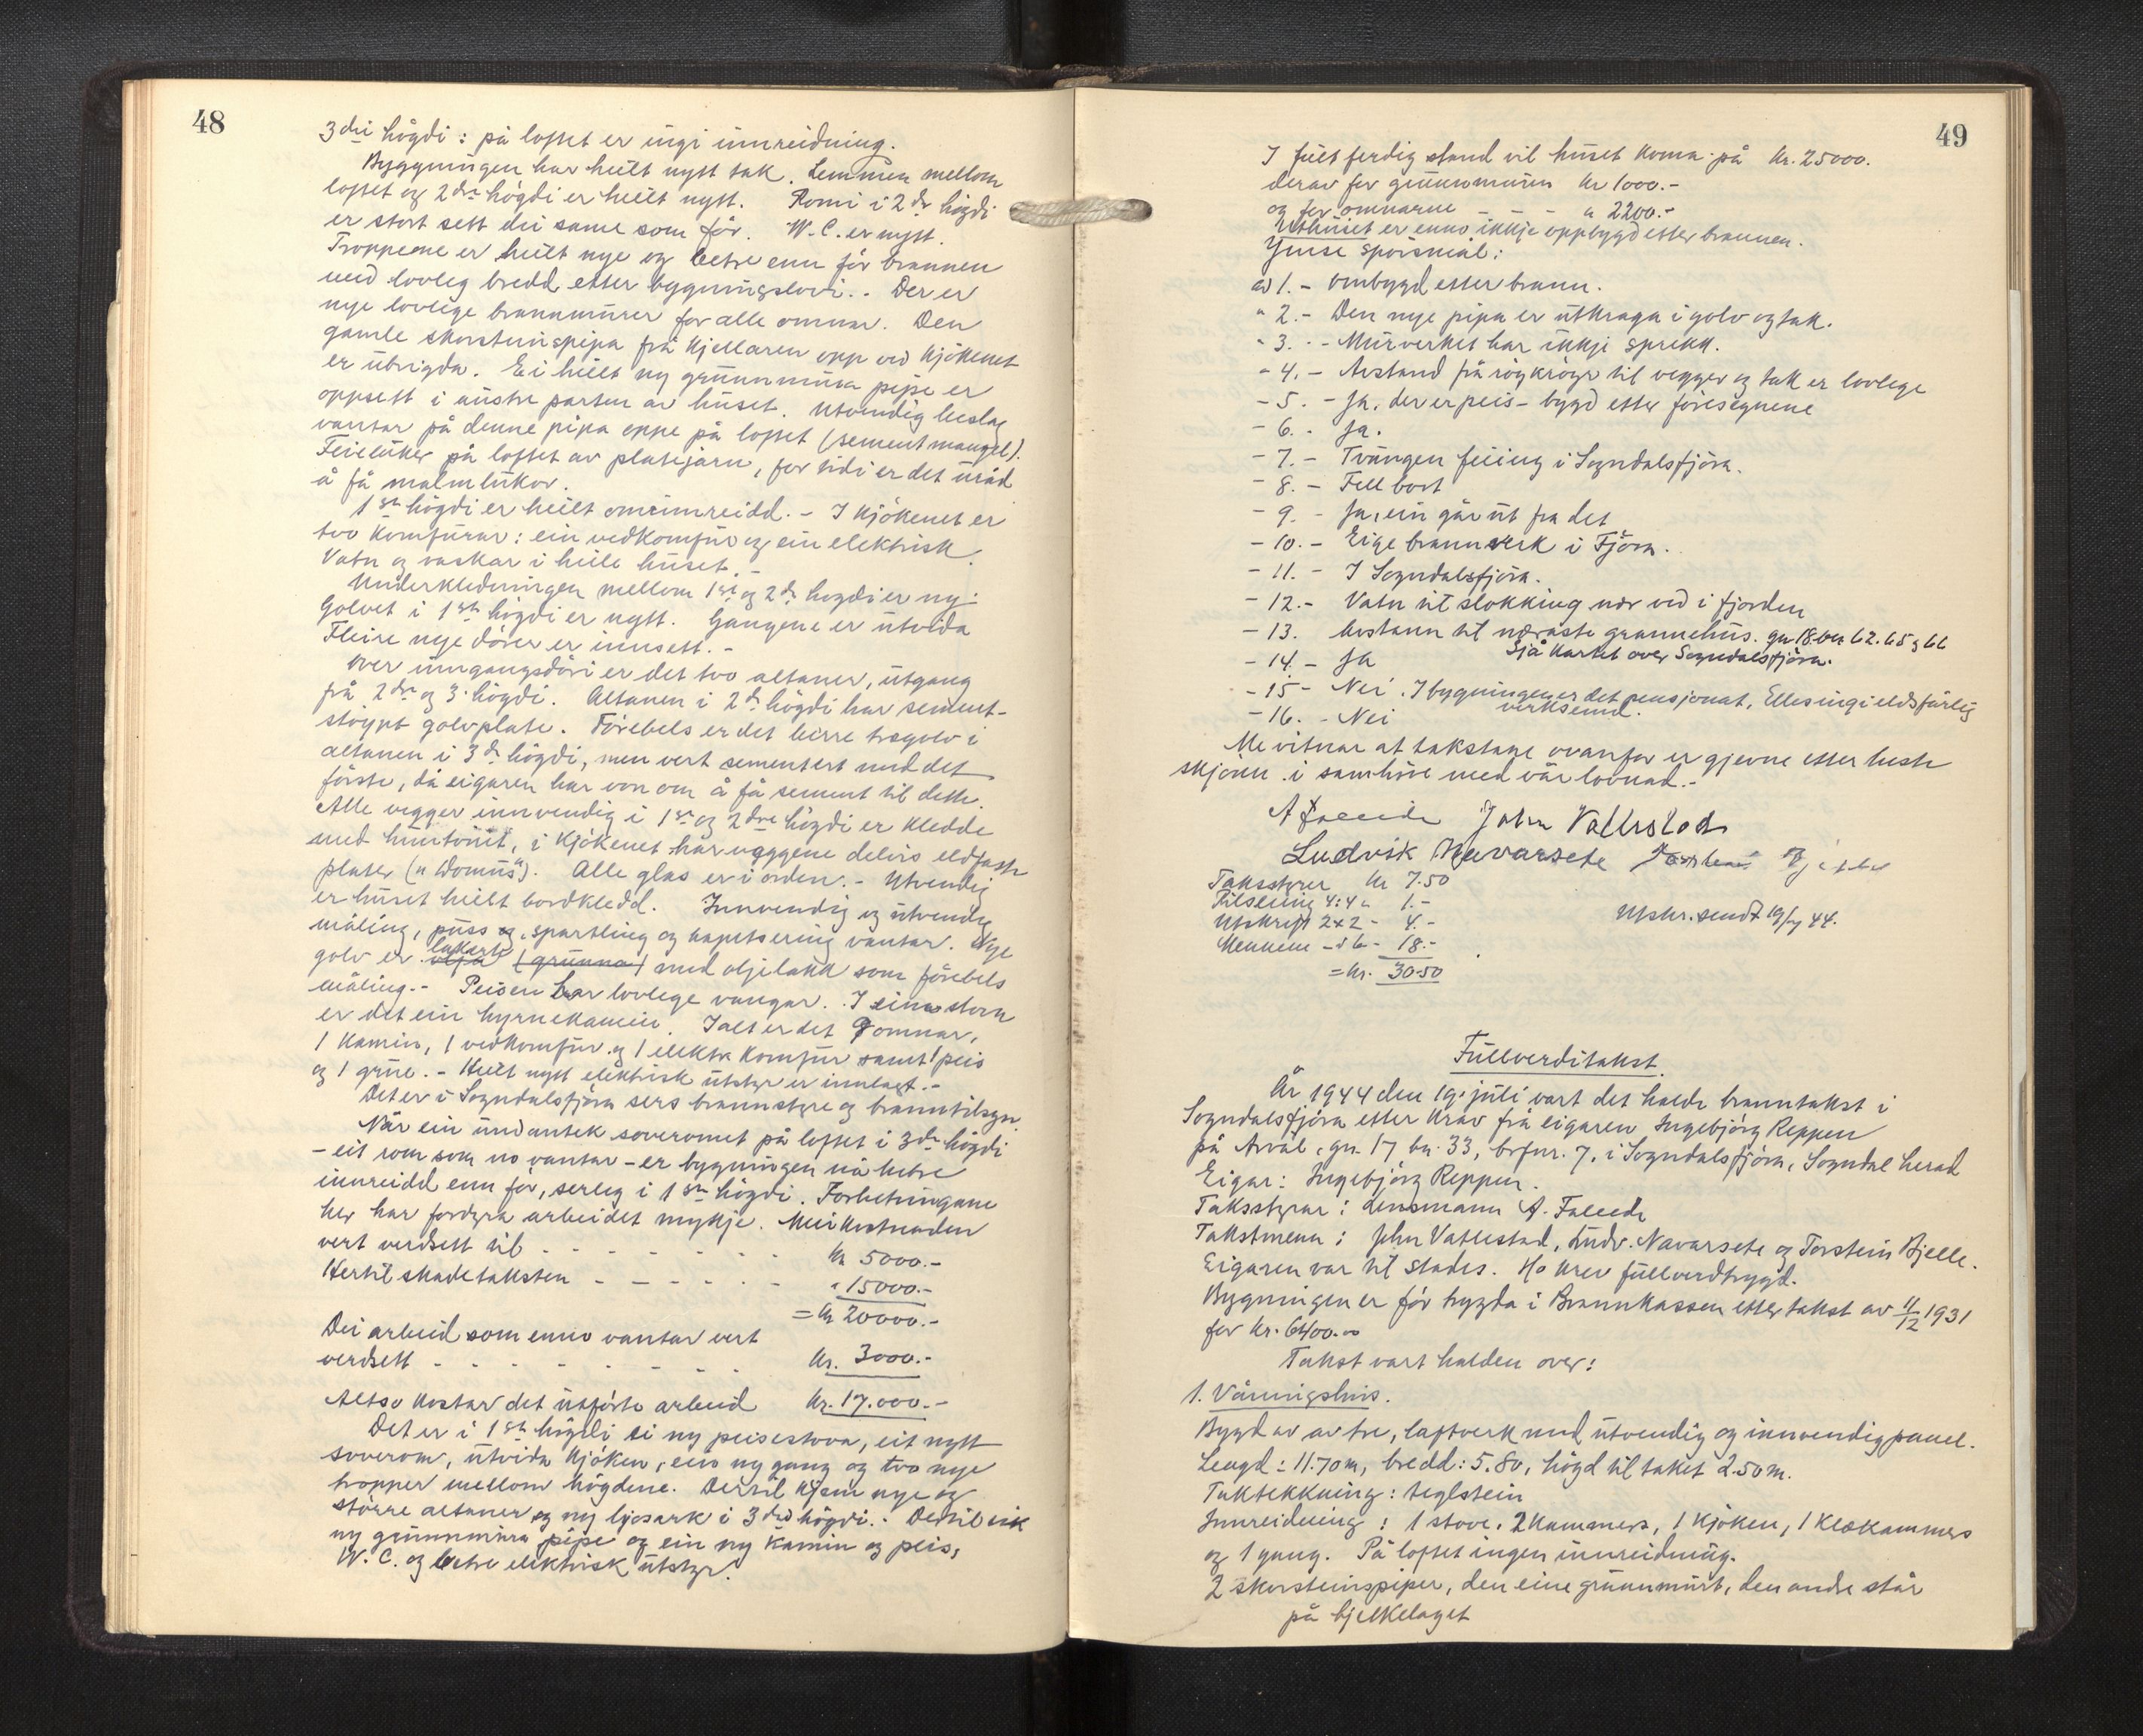 48
3dri högdi: på loftet er ingi innreidning.
Byggningen har heilt nytt tak. Lemmen mellom
loftet og 2dre högdi er heilt nytt. Romi i 2dr högdi
er stort sett dei same som för. W.C. er nytt.
Troppene er heilt nye og betre enn för brannen
med lovleg bredd etter bygningslovi. Der er
nye lovlege brannmurer for alle omnar. Den
gamle skorsteinspipa frå kjellaren opp ved kjökenet
er utrigda. Ei heilt ny grunnmura pipe er
oppsett i austre parten av huset. Utvendig beslag
vantar på denne pipa oppe på loftet (sementmangel).
Feieluker på loftet av platejarn, for tidi er det uråd
å få malmlukor.
1ste högdi er heilt ominnreidd. - I kjökenet er
två komfurar: ein vedkomfur og ein elektrisk.
Vatn og vaskar i heile huset. -
Underkledningen mellom 1ste og 2dr högdi er ny.
Golvet i 1ste högdi er nytt. Gangene er utvida
Fleire nye dörer er innsett. -
Over inngangsdöri er det tvo altaner, utgang
frå 2dre og 3. högdi. Altanen i 2dr högdi har sement-
stöypt golvplate. Förebels er det berre tregolv i
altanen i 3dr högdi, men vert sementert med det
förste, då eigaren har von om å få sement til dette.
Alle vegger innvendig i 1ste og 2dre högdi er kledde
med huntonit, i kjökenet har veggene delvis eldfaste
plater ("Domus"). Alle glas er i orden. - Utvendig
er huset heilt bordkledd. Innvendig og utvendig
måling, puss og sparkling og tapetsering vantar. Nye
golv er lakerte (grunna) med oljelakk som förebels
måling. - Peisen har lovlege vangar. I eine stova
er det ein hyrnekamin. Ialt er det 9 omnar,
1 kamin, 1 vedkomfur og 1 elektr. komfur samt 1 peis
og 1 grue. - Heilt nytt elektrisk utstyr er innlagt. -
Det er i Sogndalsfjöra sers brannstyre og branntilsyn.
Når ein undantek soveromet på loftet i 3dr högdi
- eit rom som no vantar - er bygningen nå betre
innreidd enn för, serleg i 1ste högdi. Forbetringane
her har fordyra arbeidet mykje. Meirkostnaden
vert verdsett til - - - - - - - kr 5000.-
Hertil skadetaksten - - - - - - " 15000.-
= kr 20000.-
Dei arbeid som enno vantar vert
verdsett - - - - - - - - kr. 3000.-
Altso kostar det utförte arbeid kr. 17.000.-
Det er i 1ste högdi ei ny peisestova, eit nytt
soverom, utvida kjöken, ein ny gang og tvo nye
tropper mellom högdene. Dertil kjem nye og
större altaner og ny ljosark i 3dre högdi. Dertil eik
ny grunnmura pipe og ein ny kamin og peis,
W.C. og betre elektrisk utstyr.
49
I fullt ferdig stand vil huset koma på kr. 25000.
derav for grunnmuren kr 1000.-
og for omnarne - - - " 2200.-
Uthuset er enno ikkje oppbygd etter brannen.
Ymse spörsmål:
ad 1. - Ombygd etter brann.
" 2. - Den nye pipa er utkraga i golv og tak.
" 3. - Murverket har ikkje sprekk.
" 4. - Avstand frå röykröyr til vegger og tak er lovlege
- 5. - Ja, der er peis - bygd etter föresegnene
- 6. - Ja.
- 7. - Tvungen feiing i Sogndalsfjöra.
- 8. - Fell bort
- 9. - Ja, ein går ut fra det
- 10. - Eige brannverk i Fjöra.
- 11. - I Sogndalsfjöra.
- 12. - Vatn til slokking nær ved i fjorden
- 13. Avstann til næraste grannehus. gn 18. bn 62. 65 og 66
Sjå kartet over Sogndalsfjöra.
- 14. - Ja
- 15 - Nei. I bygningen er det pensjonat. Elles ingi eldsfarleg
verksemd.
- 16. - Nei
Me vitnar at takstane ovanfor er gjevne etter beste
skjön i samhöve med vår lovnad. -
A Faleide John Vallestad
Ludvik Navarsete Torstein Bjelle
Taksstyrer kr 7.50
Tilseiing 4:4 " 1.-
Utskrift 2x2 - 4.-
Mennene - à 6 - 18.-
= kr. 30.50
Utskr. sendt 19/7 44.
Fullverditakst.
År 1944 den 19. juli vart det halde branntakst i
Sogndalsfjöra etter krav frå eigaren Ingebjörg Reppen
på Arval, gn. 17 bn. 33, brfnr. 7, i Sogndalsfjöra, Sogndal herad
Eigar: Ingebjörg Reppen.
Taksstyrar: Lensmann A. Faleide
Takstmenn: John Vallestad, Ludv. Navarsete og Torstein Bjelle.
Eigaren var til stades. Ho krev fullverdtrygd.
Bygningen er för trygda i Brannkassen etter takst av 11/12 1931
for kr. 6400.00
Takst vart halden over:
1. Våningshus.
Bygd av av tre, laftverk med utvendig og innvendig panel.
Lengd: 11.70 m, bredd: 5.80, högd til taket 2.50 m.
Taktekkning: teglstein
Innreidning: 1 stove, 2 kammers, 1 kjöken, 1 klekammers
og 1 gang. På loftet ingen innreidning.
2 skorsteinspiper, den eine grunnmurt, den andre står
på bjelkelaget